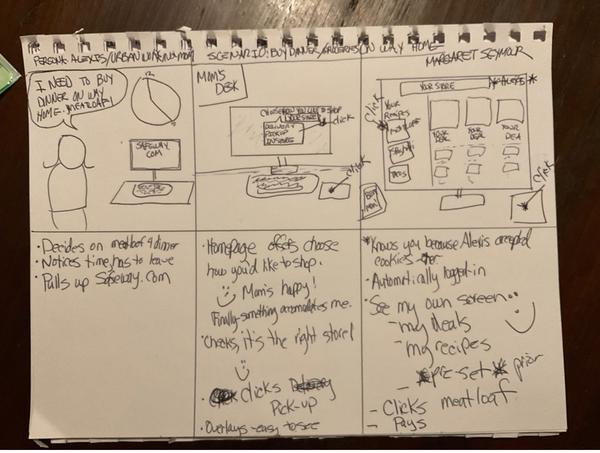 PERSONA: ALEXIS/URBAN WORKING MOM
SCENARIO: BUY DINNER GROCERIES ON WAY HOME
MARGARET SEYMOUR
I NEED TO BUY
DINNER ON WAY
HOME. MEATLOAF!
12
SAFEWAY.
COM
MOM'S
DESK
CHOOSE HOW YOU LIKE TO SHOP
YOUR STORE
DELIVERY
PICKUP
IN STORE
click
click
click
YOUR STORE
YOUR
RECIPES
MEATLOAF
TACOS
YOUR
DEAL
YOUR
DEAL
YOUR
DEA
click
• Decides on meatloaf 4 dinner
• Notices time, has to leave
• Pulls up Safeway.com
• Homepage offers choose
how you'd like to shop.
Mom's happy!
Finally-something accomodates me.
• Checks, it's the right store!
• clicks
Pick-up
• Overlays-easy to see
*Knows you because Alexis accepted
cookies
• Automatically logged-in
• See my own screen..
- my deals
- my recipes
- pre-set prior
- Clicks meatloaf
- Pays